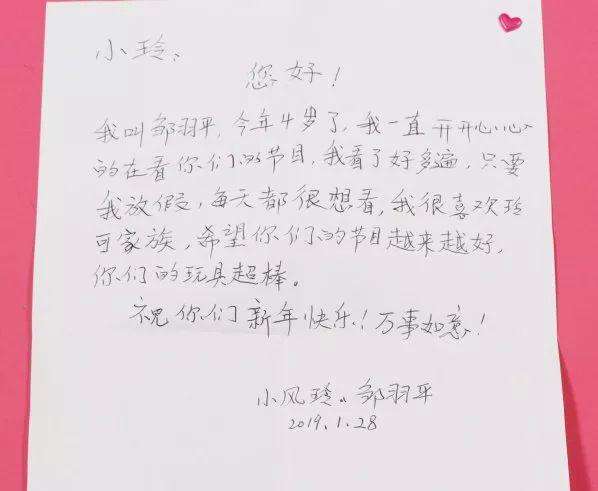 小玲：
您好！
我叫邹羽平，今年4岁了，我一直开开心心
的在看你们的节目，我看了好多遍，只要
我放假，每天都很想看，我很喜欢玲
可家族，希望你们的节目越来越好，
你们的玩具超棒。
祝你们新年快乐！万事如意！
小风玲。邹羽平
2019.1.28